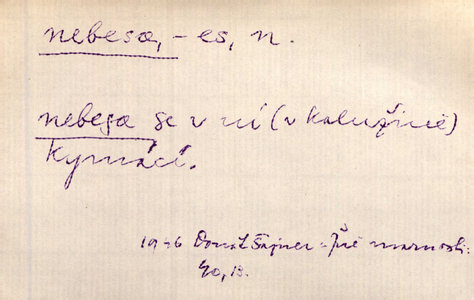 nebesa, -es, n.
nebesa se v ní (v kalužině)
kymácí.
1946 Donát Šajner - Tré marnosti:
40, 13.